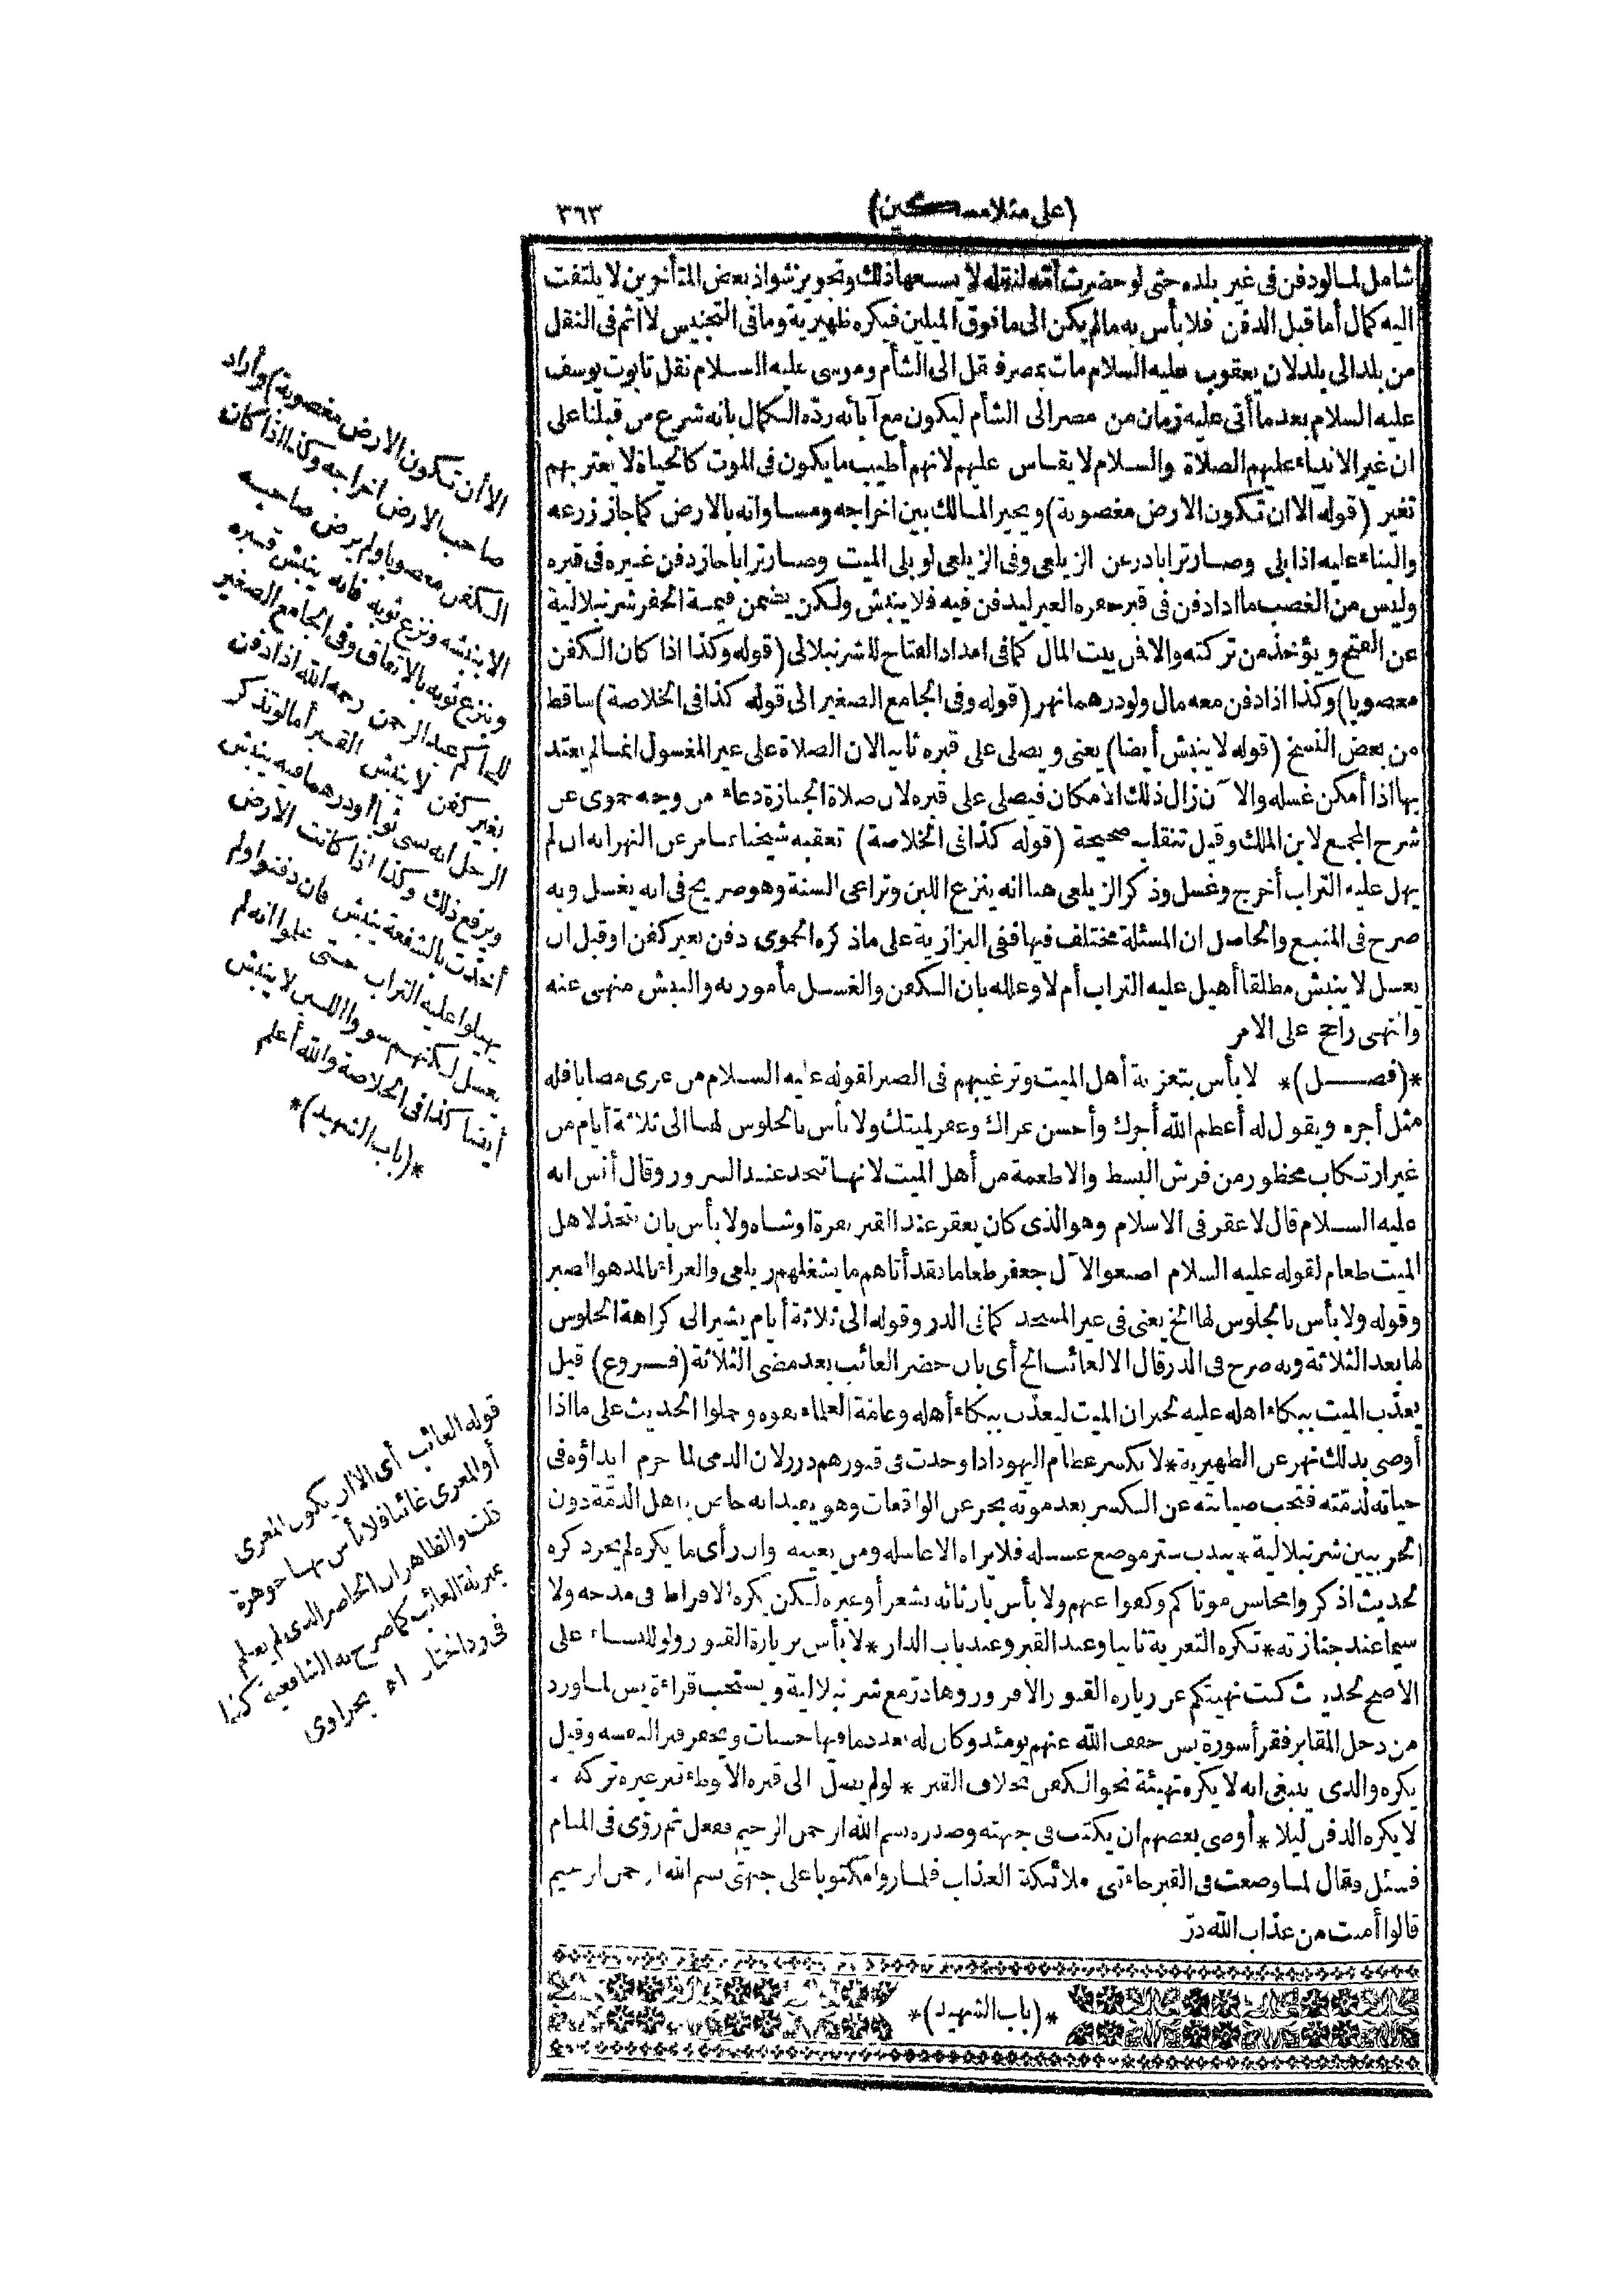 (على منلا مسكين)
٣٦٣
شامل لما لو دفن فى غير بلده حتى لو حضرت أمّه لنقله لا يسعها ذلك وتجويز شواذ بعض المتأخرين لا يلتفت
اليه كمال أما قبل الدفن فلا بأس به ما لم يكن الى ما فوق الميلين فيكره ظهيرية وما فى التجنيس لا اثم فى النقل
من بلد الى بلد لان يعقوب عليه السلام مات بمصر فنقل الى الشأم وموسى عليه السلام نقل تابوت يوسف
عليه السلام بعد ما أتى عليه زمان من مصر الى الشأم ليكون مع آبائه ردّه الكمال بانه شرع من قبلنا على
ان غير الانبياء عليهم الصلاة والسلام لا يقاس عليهم لانهم أطيب ما يكون فى الموت كالحياة لا يعتريهم
تغير (قوله الا ان تكون الارض مغصوبة) ويخير المالك بين اخراجه ومساواته بالارض كما جاز زرعه
والبناء عليه اذا بلى وصار ترابا در عن الزيلعى وفى الزيلعى لو بلى الميت وصار ترابا جاز دفن غيره فى قبره
وليس من الغصب ما اذا دفن فى قبر حفره الغير ليدفن فيه فلا ينبش ولكن يضمن قيمة الحفر شرنبلالية
عن الفتح ويؤخذ من تركته والا فمن بيت المال كما فى امداد الفتاح للشرنبلالى (قوله وكذا اذا كان الكفن
مغصوبا) وكذا اذا دفن معه مال ولو درهما نهر (قوله وفى الجامع الصغير الى قوله كذا فى الخلاصة) ساقط
من بعض النسخ (قوله لا ينبش أيضا) يعنى ويصلى على قبره ثانيا لان الصلاة على غير المغسول انما لم يعتد
بها اذا أمكن غسله والا آن زال ذلك الامكان فيصلى على قبره لان صلاة الجنازة دعاء من وجه حموى عن
شرح المجمع لابن الملك وقيل تنقلب صحيحة (قوله كذا فى الخلاصة) تعقبه شيخنا بما مر عن النهر انه ان لم
يهل عليه التراب أخرج وغسل وذكر الزيلعى هنا انه ينزع اللبن وتراعى السنة وهو صريح فى انه يغسل وبه
صرح فى المنبع والحاصل ان المسئلة مختلف فيها ففى البزازية على ما ذكره الحموى دفن بغير كفن او قبل ان
يغسل لا ينبش مطلقا أهيل عليه التراب أم لا وعلله بان الكفن والغسل مأمور به والنبش منهى عنه
والنهى راجح على الامر
*(فصل)* لا بأس بتعزية أهل الميت وترغيبهم فى الصبر لقوله عليه السلام من عزى مصابا فله
مثل أجره ويقول له أعظم الله أجرك وأحسن عزاك وغفر لميتك ولا بأس بالجلوس لها الى ثلاثة أيام من
غير ارتكاب محظور من فرش البسط والاطعمة من أهل الميت لانها تتخذ عند السرور وقال أنس انه
عليه السلام قال لا عقر فى الاسلام وهو الذى كان يعقر عند القبر بقرة او شاه ولا بأس بان يتخذ لاهل
الميت طعام لقوله عليه السلام اصنعوا لآل جعفر طعاما فقد أتاهم ما يشغلهم زيلعى والعزاء بالمد هو الصبر
وقوله ولا بأس بالجلوس لها الخ يعنى فى غير المسجد كما فى الدر وقوله الى ثلاثة أيام يشير الى كراهة الجلوس
لها بعد الثلاثة وبه صرح فى الدر قال الا لغائب الخ أى بان حضر الغائب بعد مضى الثلاثة (فروع) قيل
يعذّب الميت ببكاء اهله عليه لخبر ان الميت ليعذب ببكاء أهله وعامّة العلماء نفوه وحملوا الحديث على ما اذا
أوصى بذلك نهر عن الظهيرية * لا يكسر عظام اليهود اذا وجدت فى قبورهم درر لان الذمى لما حرم ايذاؤه فى
حياته لذمّته فتجب صيانته عن الكسر بعد موته بحر عن الواقعات وهو يفيد انه خاص باهل الذمّة دون
الحربيين شرنبلالية * يندب ستر موضع غسله فلا يراه الا غاسله ومن يعينه وان رأى ما يكره لم يجز ذكره
لحديث اذكروا محاسن موتاكم وكفوا عنهم ولا بأس بارثائه بشعر أو غيره لكن يكره الافراط فى مدحه ولا
سيما عند جنازته * تكره التعزية ثانيا وعند القبر وعند باب الدار * لا بأس بزيارة القبور ولو للنساء على
الاصح لحديث كنت نهيتكم عن زيارة القبور الا فزوروها درّ مع شرنبلالية ويستحب قراءة يس لما ورد
من دخل المقابر فقرأ سورة يس خفف الله عنهم يومئذ وكان له بعدد ما فيها حسنات ويحفر قبرا لنفسه وقيل
يكره والذى ينبغى انه لا يكره تهيئة نحو الكفن بخلاف القبر * لو لم يصل الى قبره الا بوطء قبر غيره تركه *
لا يكره الدفن ليلا * أوصى بعضهم ان يكتب فى جبهته وصدره بسم الله الرحمن الرحيم ففعل ثم رؤى فى المنام
فسئل وقال لما وضعت فى القبر جاءتنى ملائكة العذاب فلما رأوا مكتوبا على جبهتى بسم الله الرحمن الرحيم
قالوا أمنت من عذاب الله درّ
*(باب الشهيد)*
الا أن تكون الارض مغصوبة) وأراد
صاحب الارض اخراجه وكذا اذا كان
الكفن مغصوبا ولم يرض صاحبه
الا بنبشه ونزع ثوبه فانه ينبش قبره
وينزع ثوبه بالاتفاق وفى الجامع الصغير
للحاكم عبد الرحمن رحمه الله اذا دفن
بغير كفن لا ينبش القبر أما لو تذكر
الرجل انه نسى ثوبا أو درهما فيه ينبش
ويرفع ذلك وكذا اذا كانت الارض
أخذت بالشفعة ينبش فان دفنوا ولم
يهيلوا عليه التراب حتى علموا انه لم
يغسل لكنهم سووا اللبن لا ينبش
أيضا كذا فى الخلاصة والله أعلم
*(باب الشهيد)*
قوله الغائب أى الا ان يكون المعزى
أو المعزى غائبا فلا بأس بها جوهرة
قلت والظاهر ان الحاضر الذى لم يعلم
بمنزلة الغائب كما صرح به الشافعية كذا
فى رد المختار اه بحراوى